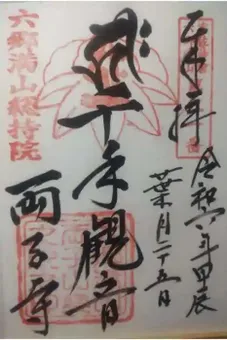 奉拝
令和六年甲辰
葉月二十五日
千手觀音
六郷満山總持院
両子寺